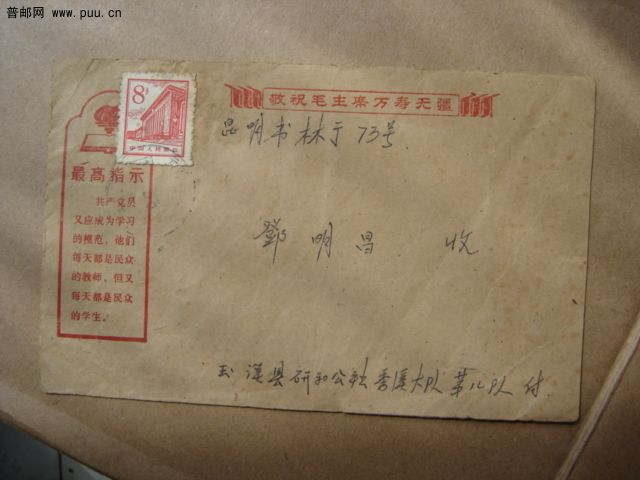 普邮网 www.puu.cn
8分
中国人民邮政
敬祝毛主席万寿无疆
昆明书林于73号
最高指示
共产党员
又应成为学习
的模范，他们
每天都是民众
的教师，但又
每天都是民众
的学生。
鄧明昌 收
玉溪县研和公社秀溪大队第八队 付